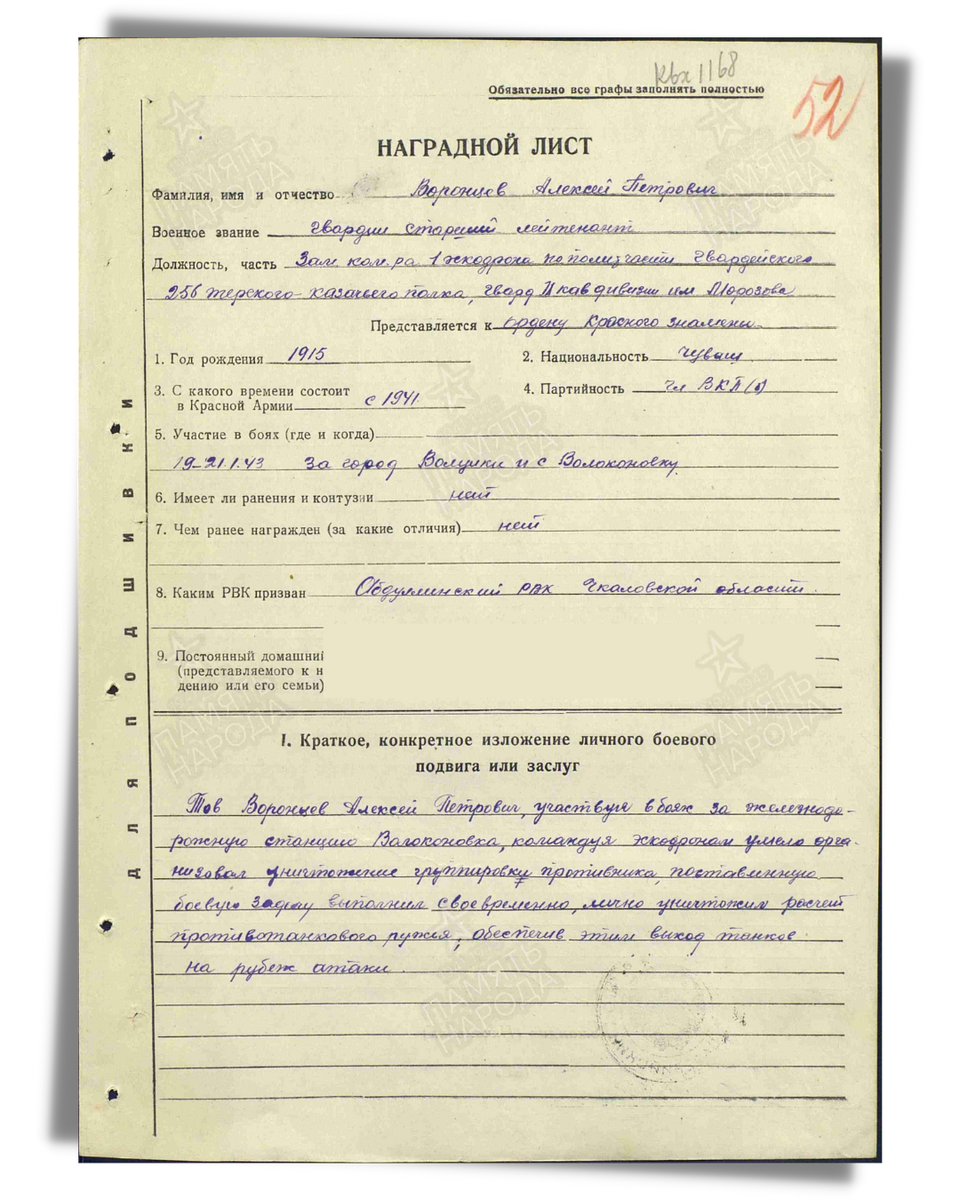 Квх 1168
Обязательно все графы заполнять полностью
52
НАГРАДНОЙ ЛИСТ
Фамилия, имя и отчество Воронцов Алексей Петрович
Военное звание Гвардии старший лейтенант
Должность, часть Зам ком.ра 1 эскодрона по политчасти Гвардейского
256 терского-казачьего полка, гвард II кав дивизии им Морозова
Представляется к ордену Красного знамени
1. Год рождения 1915
2. Национальность чуваш
3. С какого времени состоит
в Красной Армии с 1941
4. Партийность чл ВКП(б)
5. Участие в боях (где и когда)
19-21.1.43 За город Волуики и с Волоконовку
6. Имеет ли ранения и контузии нет
7. Чем ранее награжден (за какие отличия) нет
8. Каким РВК призван Абдулинский РВК Чкаловской области
9. Постоянный домашний
(представляемого к н
дению или его семьи)
I. Краткое, конкретное изложение личного боевого
подвига или заслуг
Тов Воронцев Алексей Петрович, участвуя в боях за железнодо-
рожную станцию Волоконовка, командуя эскодроном умело орга-
низовал уничтожение группировки противника, поставленную
боевую задачу выполнил своевременно, лично уничтожил расчет
противотанкового ружья, обеспечив этим выход танков
на рубеж атаки.
для подшивки
ПАМЯТЬ НАРОДА